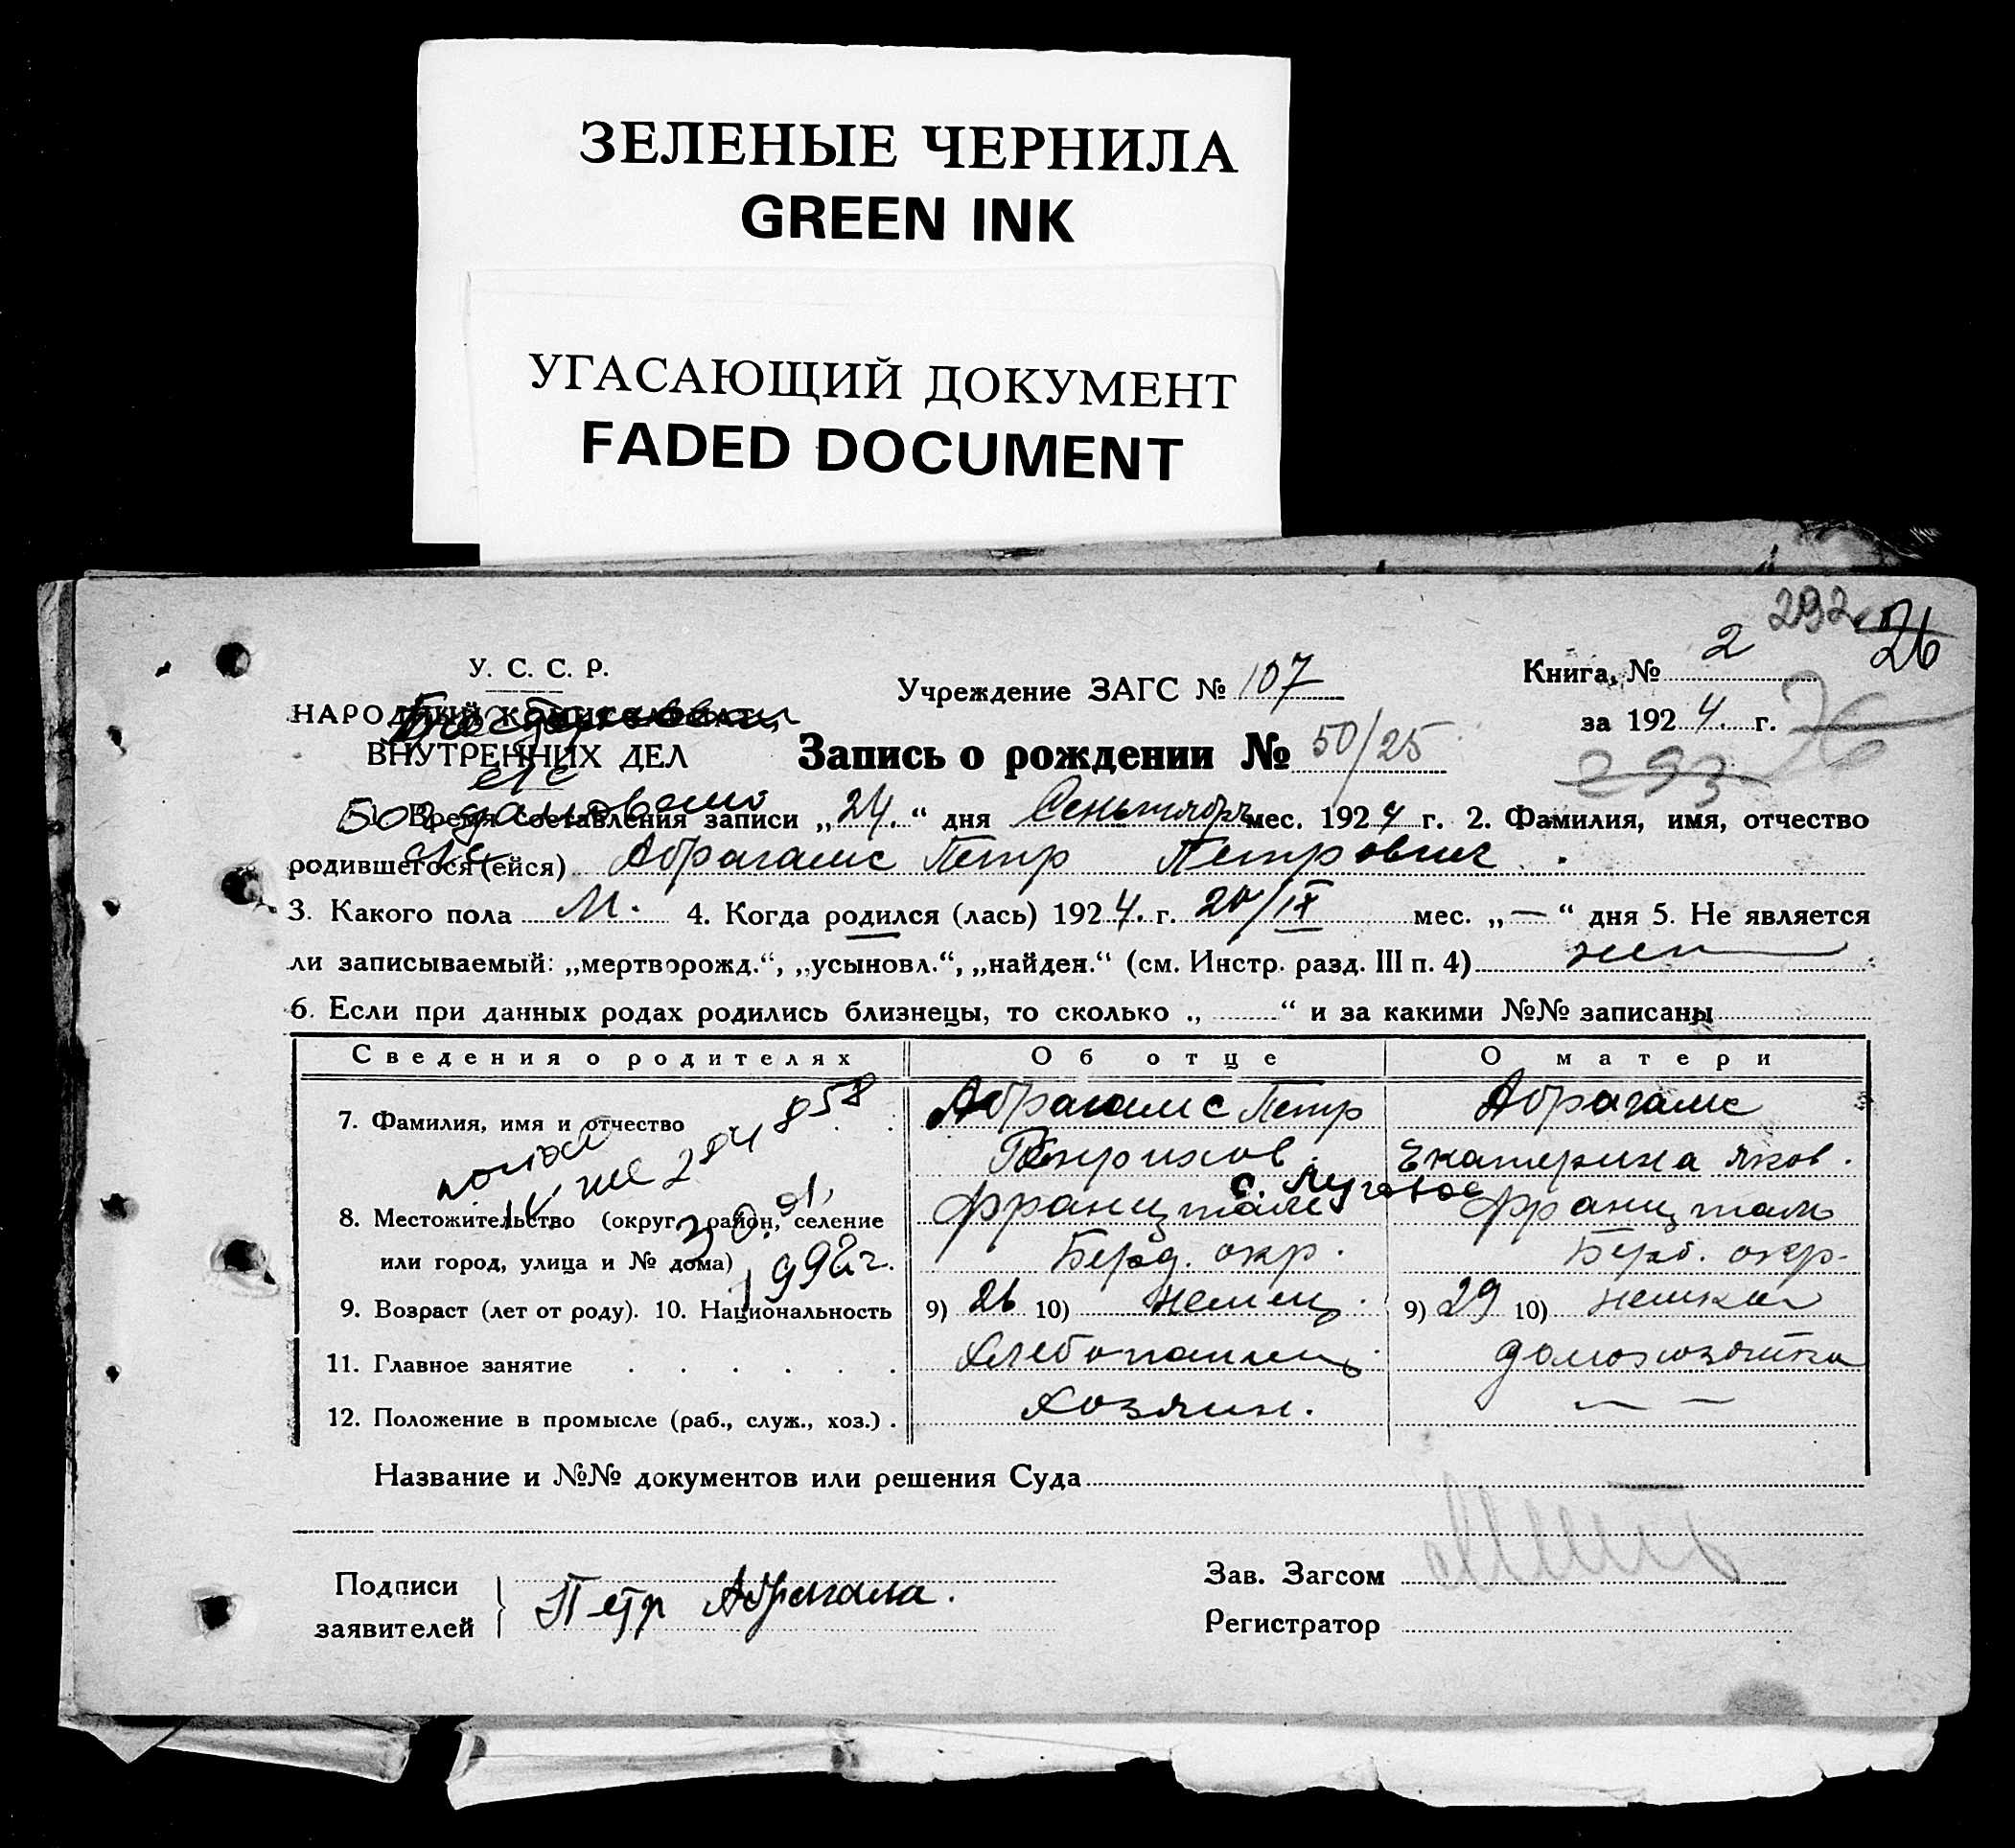 ЗЕЛЕНЫЕ ЧЕРНИЛА
GREEN INK
УГАСАЮЩИЙ ДОКУМЕНТ
FADED DOCUMENT
292 26
У. С. С. Р.
НАРОДНЫЙ КОМИССАРИАТ
ВНУТРЕННИХ ДЕЛ
Учреждение ЗАГС № 107
Книга, № 2
за 1924. г.
Запись о рождении № 50/25
293
1. Время составления записи „24.“ дня Сентября мес. 1924 г. 2. Фамилия, имя, отчество
родившегося (ейся) Абрагамс Петр Петрович.
3. Какого пола М. 4. Когда родился (лась) 1924. г. 20/IX мес. „—“ дня 5. Не является
ли записываемый: „мертворожд.“, „усыновл.“, „найден.“ (см. Инстр. разд. III п. 4) нет
6. Если при данных родах родились близнецы, то сколько „ “ и за какими №№ записаны
Сведения о родителях Об отце О матери
7. Фамилия, имя и отчество Абрагамс Петр Абрагамс
Генрихов. Екатерина Яков.
с. Луговое
8. Местожительство (округ, район, селение Францталь Францталь
или город, улица и № дома) Берд. окр. Берд. окр.
1992 г.
9. Возраст (лет от роду). 10. Национальность 9) 26 10) немец. 9) 29 10) немка
11. Главное занятие Хлебопашец. домохозяйка
12. Положение в промысле (раб., служ., хоз.) . Хозяин. — —
Название и №№ документов или решения Суда
Подписи
заявителей
Петр Абрагамс.
Зав. Загсом
Регистратор